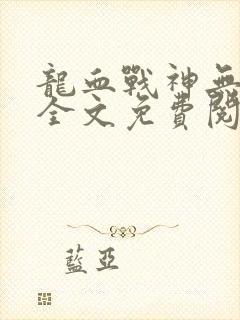 龍血戰神無
全文免費閱
藍亞